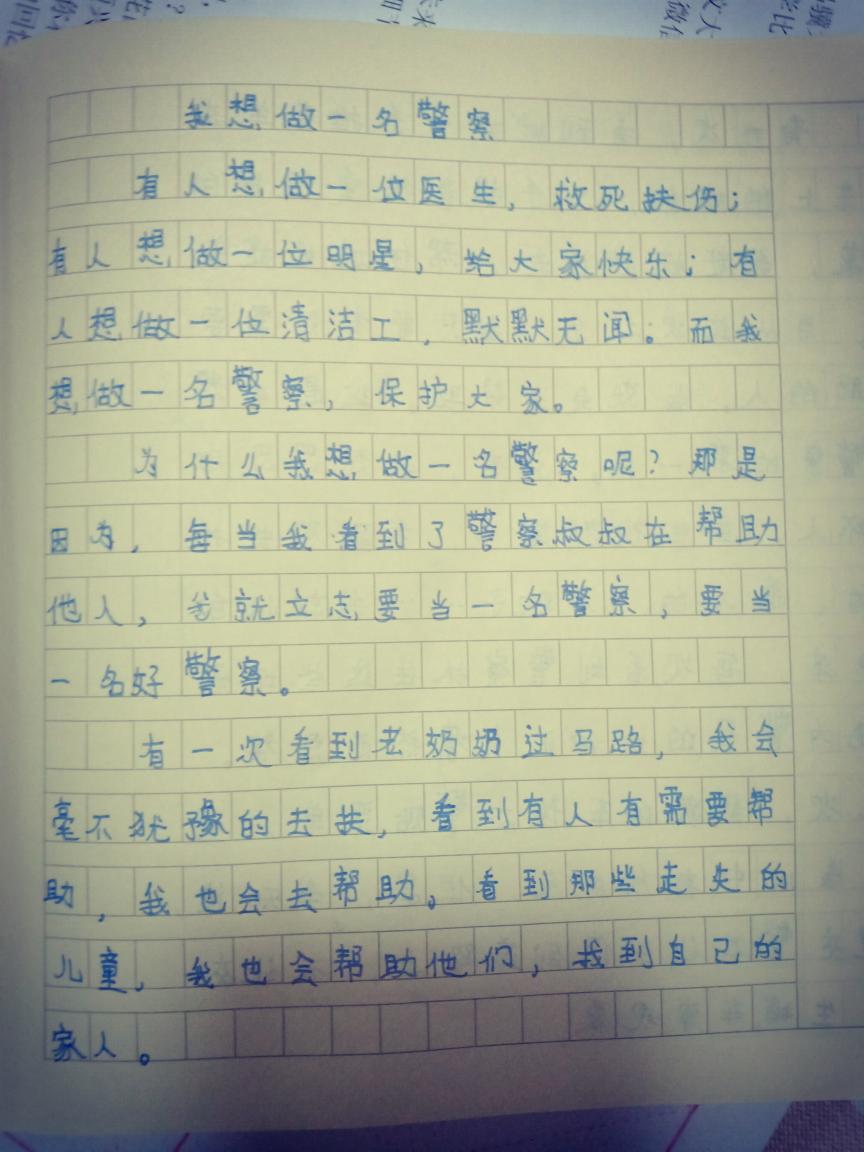 我想做一名警察
有人想做一位医生，救死扶伤；
有人想做一位明星，给大家快乐；有
人想做一位清洁工，默默无闻。而我
想做一名警察，保护大家。
为什么我想做一名警察呢？那是
因为，每当我看到了警察叔叔在帮助
他人，就立志要当一名警察，要当
一名好警察。
有一次看到老奶奶过马路，我会
毫不犹豫的去扶，看到有人有需要帮
助，我也会去帮助。看到那些走失的
儿童，我也会帮助他们，找到自己的
家人。